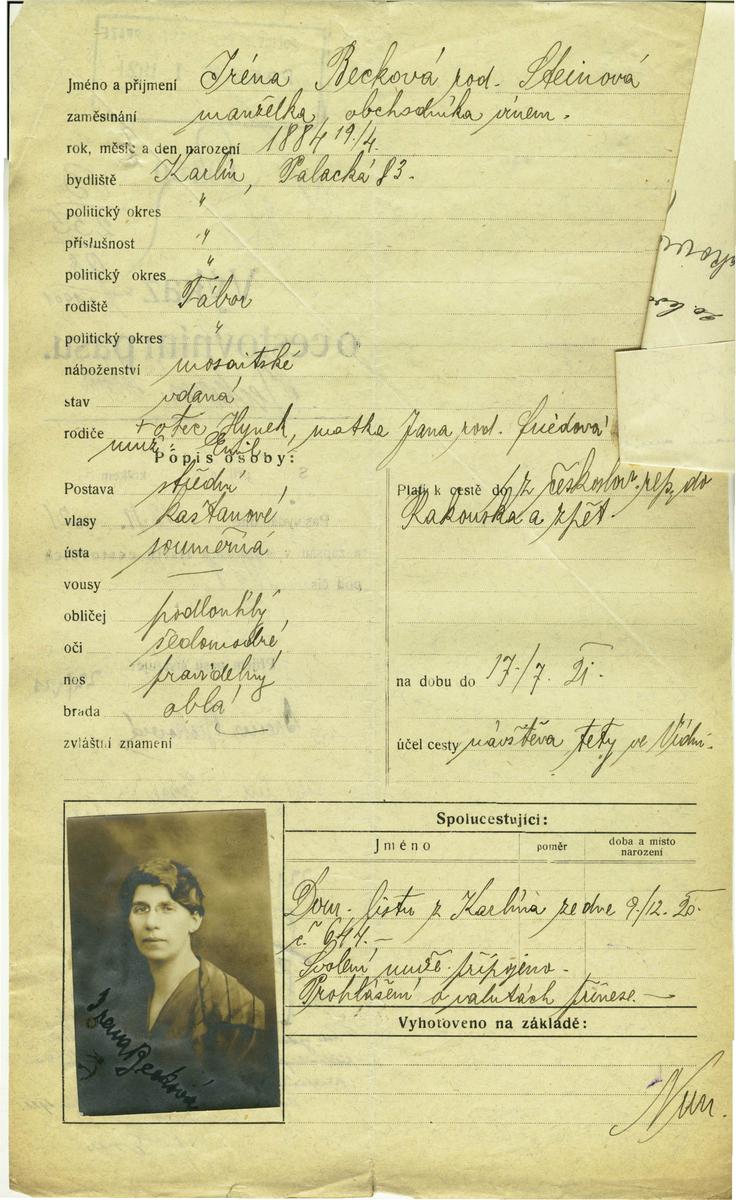 Jméno a příjmení Iréna Becková rod. Steinová
zaměstnání manželka obchodníka vínem.
rok, měsíc a den narození 1884 19/4.
bydliště Karlín, Palacká 83.
politický okres "
příslušnost "
politický okres "
rodiště Tábor
politický okres "
náboženství mosaitské
stav vdaná
rodiče + otec Hynek, matka Jana rod.
muž: Emil
Popis osoby:
Postava střední
vlasy kaštanové
ústa souměrná
vousy —
obličej podlouhlý
oči šedomodré
nos pravidelný
brada oblá
zvláštní znamení
Platí k cestě do z českoslov. rep. do
Rakouska a zpět.
na dobu do 17/7. 21.
účel cesty návštěva tety ve Vídni.
Spolucestující:
Jméno poměr doba a místo narození
Dom. listu z Karlína ze dne 9/12. 20.
č. 644. —
Svolení muže připojeno.
Prohlášení o valutách přinese. —
Vyhotoveno na základě:
Irena Becková